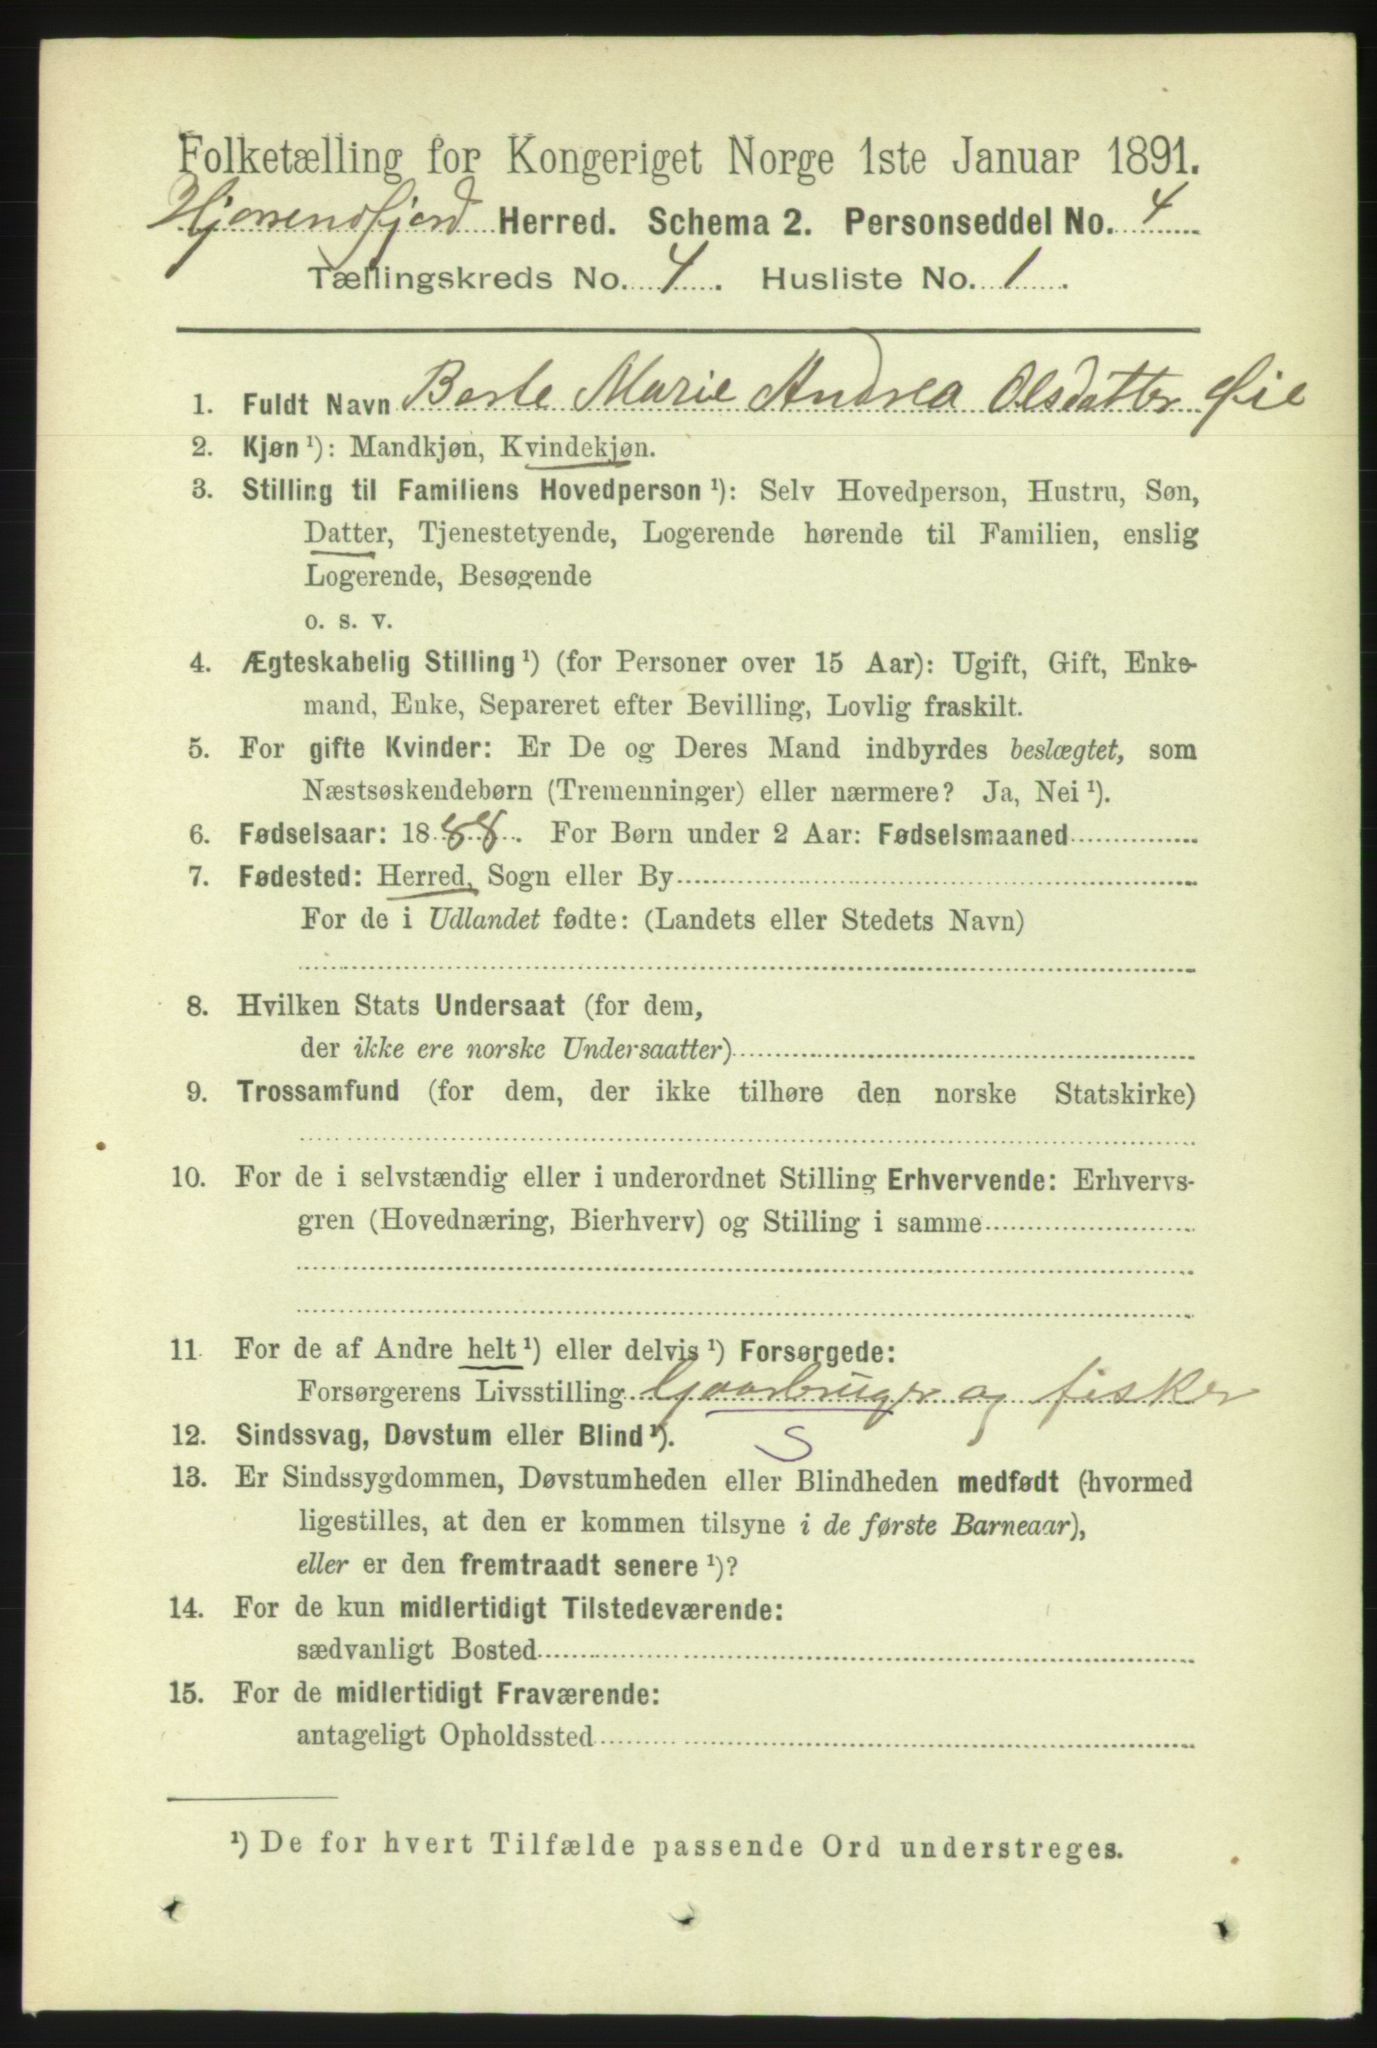 Folketælling for Kongeriget Norge 1ste Januar 1891.
Hjørendfjord Herred. Schema 2. Personseddel No. 4
Tællingskreds No. 4. Husliste No. 1.
1. Fuldt Navn Berte Marie Andrea Olsdatter Øie
2. Kjøn ¹): Mandkjøn, Kvindekjøn.
3. Stilling til Familiens Hovedperson ¹): Selv Hovedperson, Hustru, Søn,
Datter, Tjenestetyende, Logerende hørende til Familien, enslig
Logerende, Besøgende
o. s. v.
4. Ægteskabelig Stilling ¹) (for Personer over 15 Aar): Ugift, Gift, Enke-
mand, Enke, Separeret efter Bevilling, Lovlig fraskilt.
5. For gifte Kvinder: Er De og Deres Mand indbyrdes beslægtet, som
Næstsøskendebørn (Tremenninger) eller nærmere? Ja, Nei ¹).
6. Fødselsaar: 1888. For Børn under 2 Aar: Fødselsmaaned
7. Fødested: Herred, Sogn eller By
For de i Udlandet fødte: (Landets eller Stedets Navn)
8. Hvilken Stats Undersaat (for dem,
der ikke ere norske Undersaatter)
9. Trossamfund (for dem, der ikke tilhøre den norske Statskirke)
10. For de i selvstændig eller i underordnet Stilling Erhvervende: Erhvervs-
gren (Hovednæring, Bierhverv) og Stilling i samme
11 For de af Andre helt ¹) eller delvis ¹) Forsørgede:
Forsørgerens Livsstilling Gaarbruger og fisker
12. Sindssvag, Døvstum eller Blind ¹). S
13. Er Sindssygdommen, Døvstumheden eller Blindheden medfødt (hvormed
ligestilles, at den er kommen tilsyne i de første Barneaar),
eller er den fremtraadt senere ¹)?
14. For de kun midlertidigt Tilstedeværende:
sædvanligt Bosted
15. For de midlertidigt Fraværende:
antageligt Opholdssted
¹) De for hvert Tilfælde passende Ord understreges.